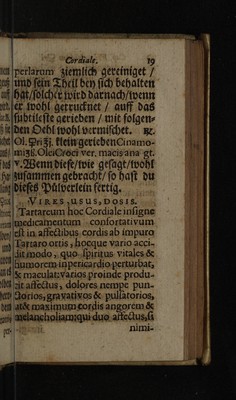 Cordiale. 19
perlarum ziemlich gereiniget /
und sein Theil bey sich behalten
hat / solcher wird darnach / wenn
er wohl getrucknet / auff das
subtileste gerieben / mit folgen-
den Oehl wohl vermischet. ℞.
klein gerieben Cinamo-
Olei Croci ver. macis ana gt.
v. Wenn diese / wie gesagt / wohl
zusammen gebracht / so hast du
dieses Pülverlein fertig.
VIRES, USUS, DOSIS.
Tartareum hoc Cordiale insigne
medicamentum confortativum
est in affectibus cordis ab impuro
Tartaro ortis, hocque vario acci-
dit modo, quo spiritus vitales &
humorem in pericardio perturbat,
& maculat: varios proinde produ-
cit affectus, dolores nempe pun-
ctorios, gravativos & pulsatorios,
atque maximum cordis angorem &
melancholiam: qui duo affectus, si
nimi-